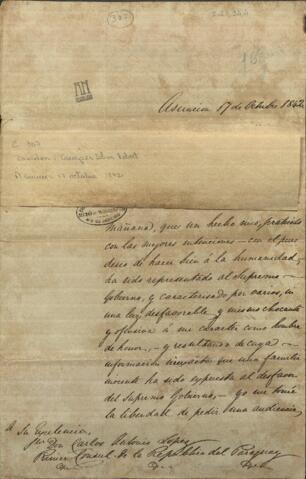 307
Asuncion 17 de Octubre 1842
C 307
Asuncion 17 octubre 1842
mañana, que un hecho mio, practicado
con las mejores intenciones – con el puro
deseo de hacer bien á la humanidad,
ha sido representado al Supremo
Gobierno, y caracterisado por varios, en
una luz desfavorable, y mismo chocante
y ofensiva á mi caracter como hombre
de honor, – y resultando de cuya
informacion siniestra que una
ha sido expuesta al desfavor
del Supremo Gobierno, – yo me tomé
la libertad de pedir una audiencia,
A Su Excelencia,
Don Carlos Antonio Lopez
Primer Consul de la Republica del Paraguay